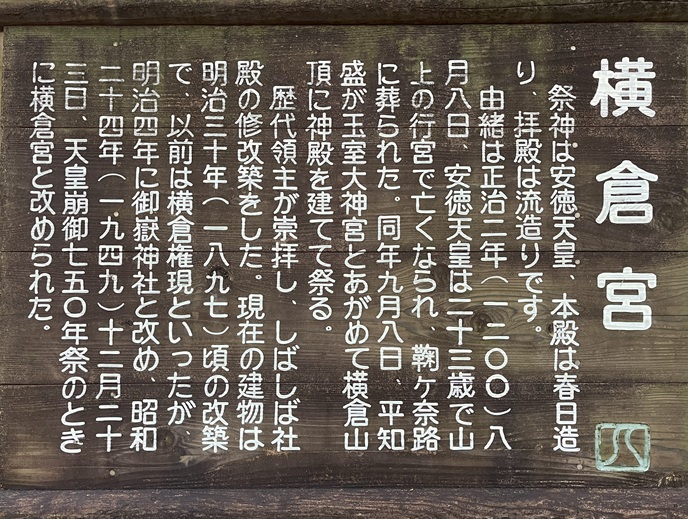 横倉宮
祭神は安徳天皇、本殿は春日造
り、拝殿は流造りです。
由緒は正治二年(一二〇〇)八
月八日、安徳天皇は二十三歳で山
上の行宮で亡くなられ、鞠ヶ奈路
に葬られた。同年九月八日、平知
盛が玉室大神宮とあがめて横倉山
頂に神殿を建てて祭る。
歴代領主が崇拝し、しばしば社
殿の修改築をした。現在の建物は
明治三十年(一八九七)頃の改築
で、以前は横倉権現といったが、
明治四年に御嶽神社と改め、昭和
二十四年(一九四九)十二月二十
三日、天皇崩御七五〇年祭のとき
に横倉宮と改められた。